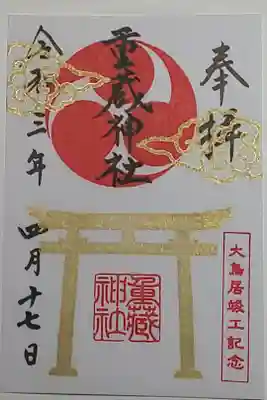 奉拝
重蔵神社
令和三年
四月十七日
大鳥居竣工記念
重蔵神社